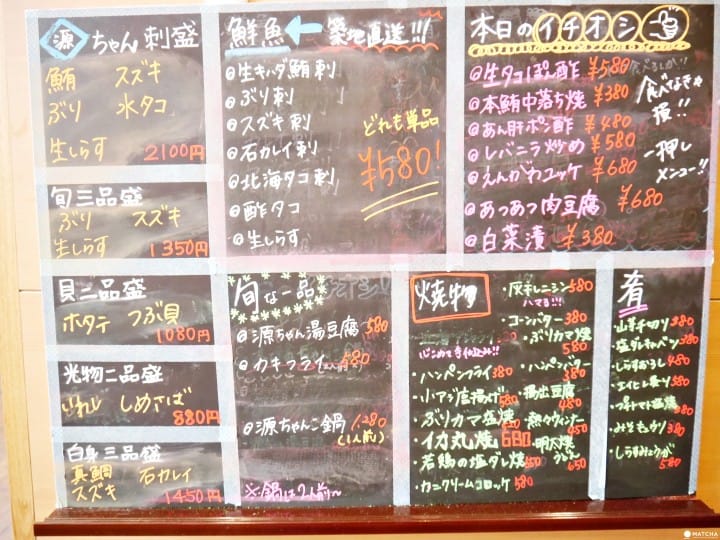 源ちゃん刺盛
鮪 スズキ
ぶり 水タコ
生しらす 2100円
旬三品盛
ぶり スズキ
生しらす 1350円
貝二品盛
ホタテ つぶ貝
1080円
光物二品盛
いわし しめさば
880円
白身三品盛
真鯛 石カレイ
スズキ 1450円
鮮魚 ← 築地直送!!!
生キハダ鮪刺
ぶり刺
スズキ刺
石カレイ刺
北海タコ刺
酢タコ
生しらす
どれも単品
¥580!
本日のイチオシ
生タコぽん酢 ¥580
本鮪中落ち焼 ¥380
あん肝ポン酢 ¥480
レバニラ炒め ¥580
えんがわユッケ ¥680
あつあつ肉豆腐 ¥680
白菜漬 ¥380
食べなきゃ
損!!
一押し
メニュー!!
旬な一品
源ちゃん湯豆腐 580
カキフライ 580
源ちゃんこ鍋 1,280
(1人前)
※鍋は2人前〜
焼物
・灰干しニシン 580
ハマる!!!
・コーンバター 380
・ぶりカマ焼
580
・ハンペンフライ 380
・ハンペンバター 380
・小アジ唐揚げ 580
・揚出豆腐 480
・ぶりカマ塩焼
・熱々ウィンナー 450
・イカ丸焼 680
・明太焼
うどん 650
・若鶏の塩ダレ焼
・カニクリームコロッケ 580
肴
・山芋千切り 380
・塩ダレキャベツ 380
・しらすおろし 480
・エイヒレ炙り 580
・みそきゅうり 380
・しらすみょうが
580
MATCHA